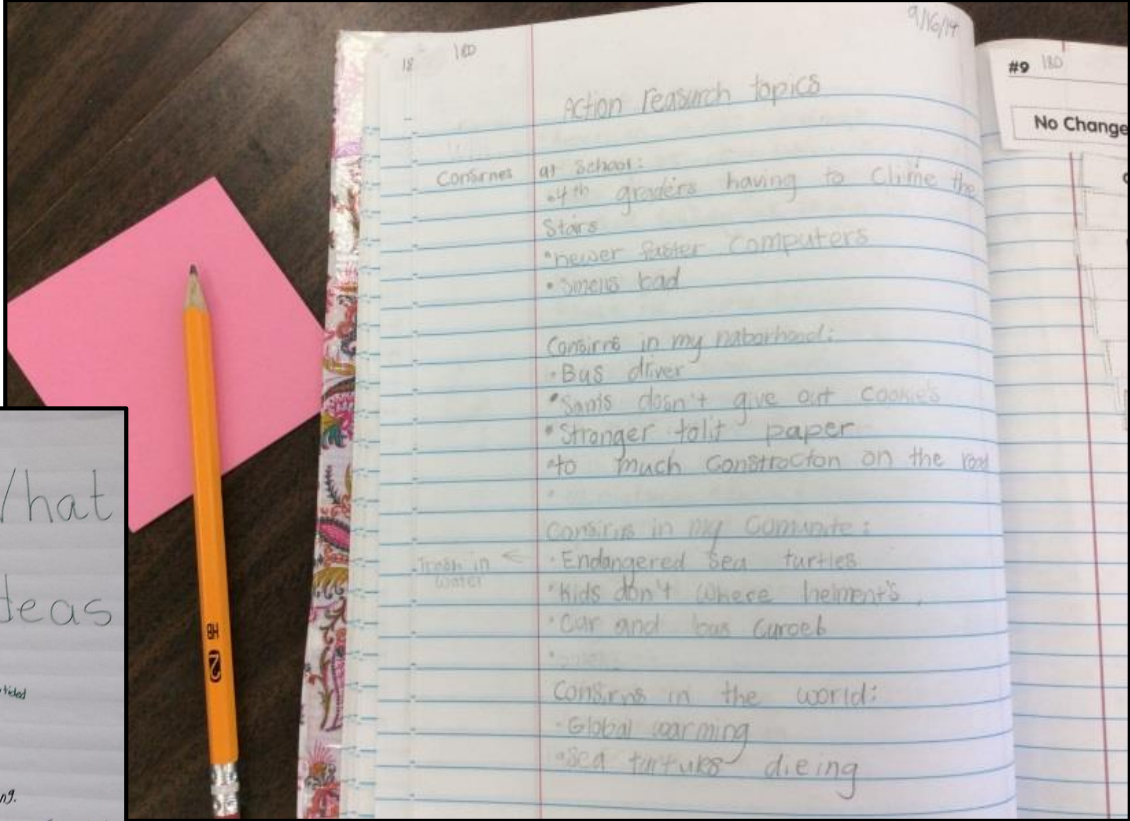 9/16/14
18 180
Action reasurch topics
Consirnes at School:
•4th graders having to Clime the
Stairs
•newer faster computers
•Smells bad
Consirns in my naborhood:
•Bus driver
•Sams dosn't give out cookie's
•Stronger tolit paper
•to much Constrocton on the road
Consirns in my Comunite:
Trash in
water
←
•Endangered Sea turtles
•Kids don't where helment's
•Car and bus
Consirns in the world:
•Global warming
•Sea turtules dieing
#9 180
No Change
What
deas
ng.
HB 2